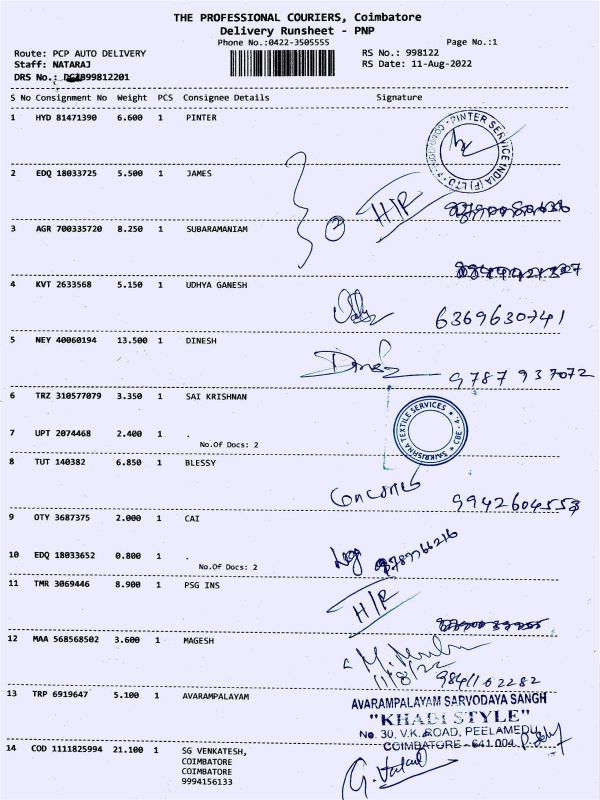 THE PROFESSIONAL COURIERS, Coimbatore
Delivery Runsheet - PNP
Phone No.:0422-3505555 Page No.:1
Route: PCP AUTO DELIVERY RS No.: 998122
Staff: NATARAJ RS Date: 11-Aug-2022
DRS No.: 899812201
S No Consignment No Weight PCS Consignee Details Signature
1 HYD 81471390 6.600 1 PINTER
PINTER SERVICE INDIA (P) LTD.
2 EDQ 18033725 5.500 1 JAMES
2 H/R
3 AGR 700335720 8.250 1 SUBARAMANIAM
4 KVT 2633568 5.150 1 UDHYA GANESH
6369630741
5 NEY 40060194 13.500 1 DINESH
9787 937072
6 TRZ 310577079 3.350 1 SAI KRISHNAN
SAIKRISHNA TEXTILE SERVICES CBE - 4.
7 UPT 2074468 2.400 1 .
No.Of Docs: 2
8 TUT 140382 6.850 1 BLESSY
9942604553
9 OTY 3687375 2.000 1 CAI
10 EDQ 18033652 0.800 1 .
No.Of Docs: 2
11 TMR 3069446 8.900 1 PSG INS
H/R
12 MAA 568568502 3.600 1 MAGESH
11/8/22 9841162282
13 TRP 6919647 5.100 1 AVARAMPALAYAM
AVARAMPALAYAM SARVODAYA SANGH
"KHADI STYLE"
No. 30, V.K. ROAD, PEELAMEDU,
COIMBATORE - 641 004.
14 COD 1111825994 21.100 1 SG VENKATESH,
COIMBATORE
COIMBATORE
9994156133